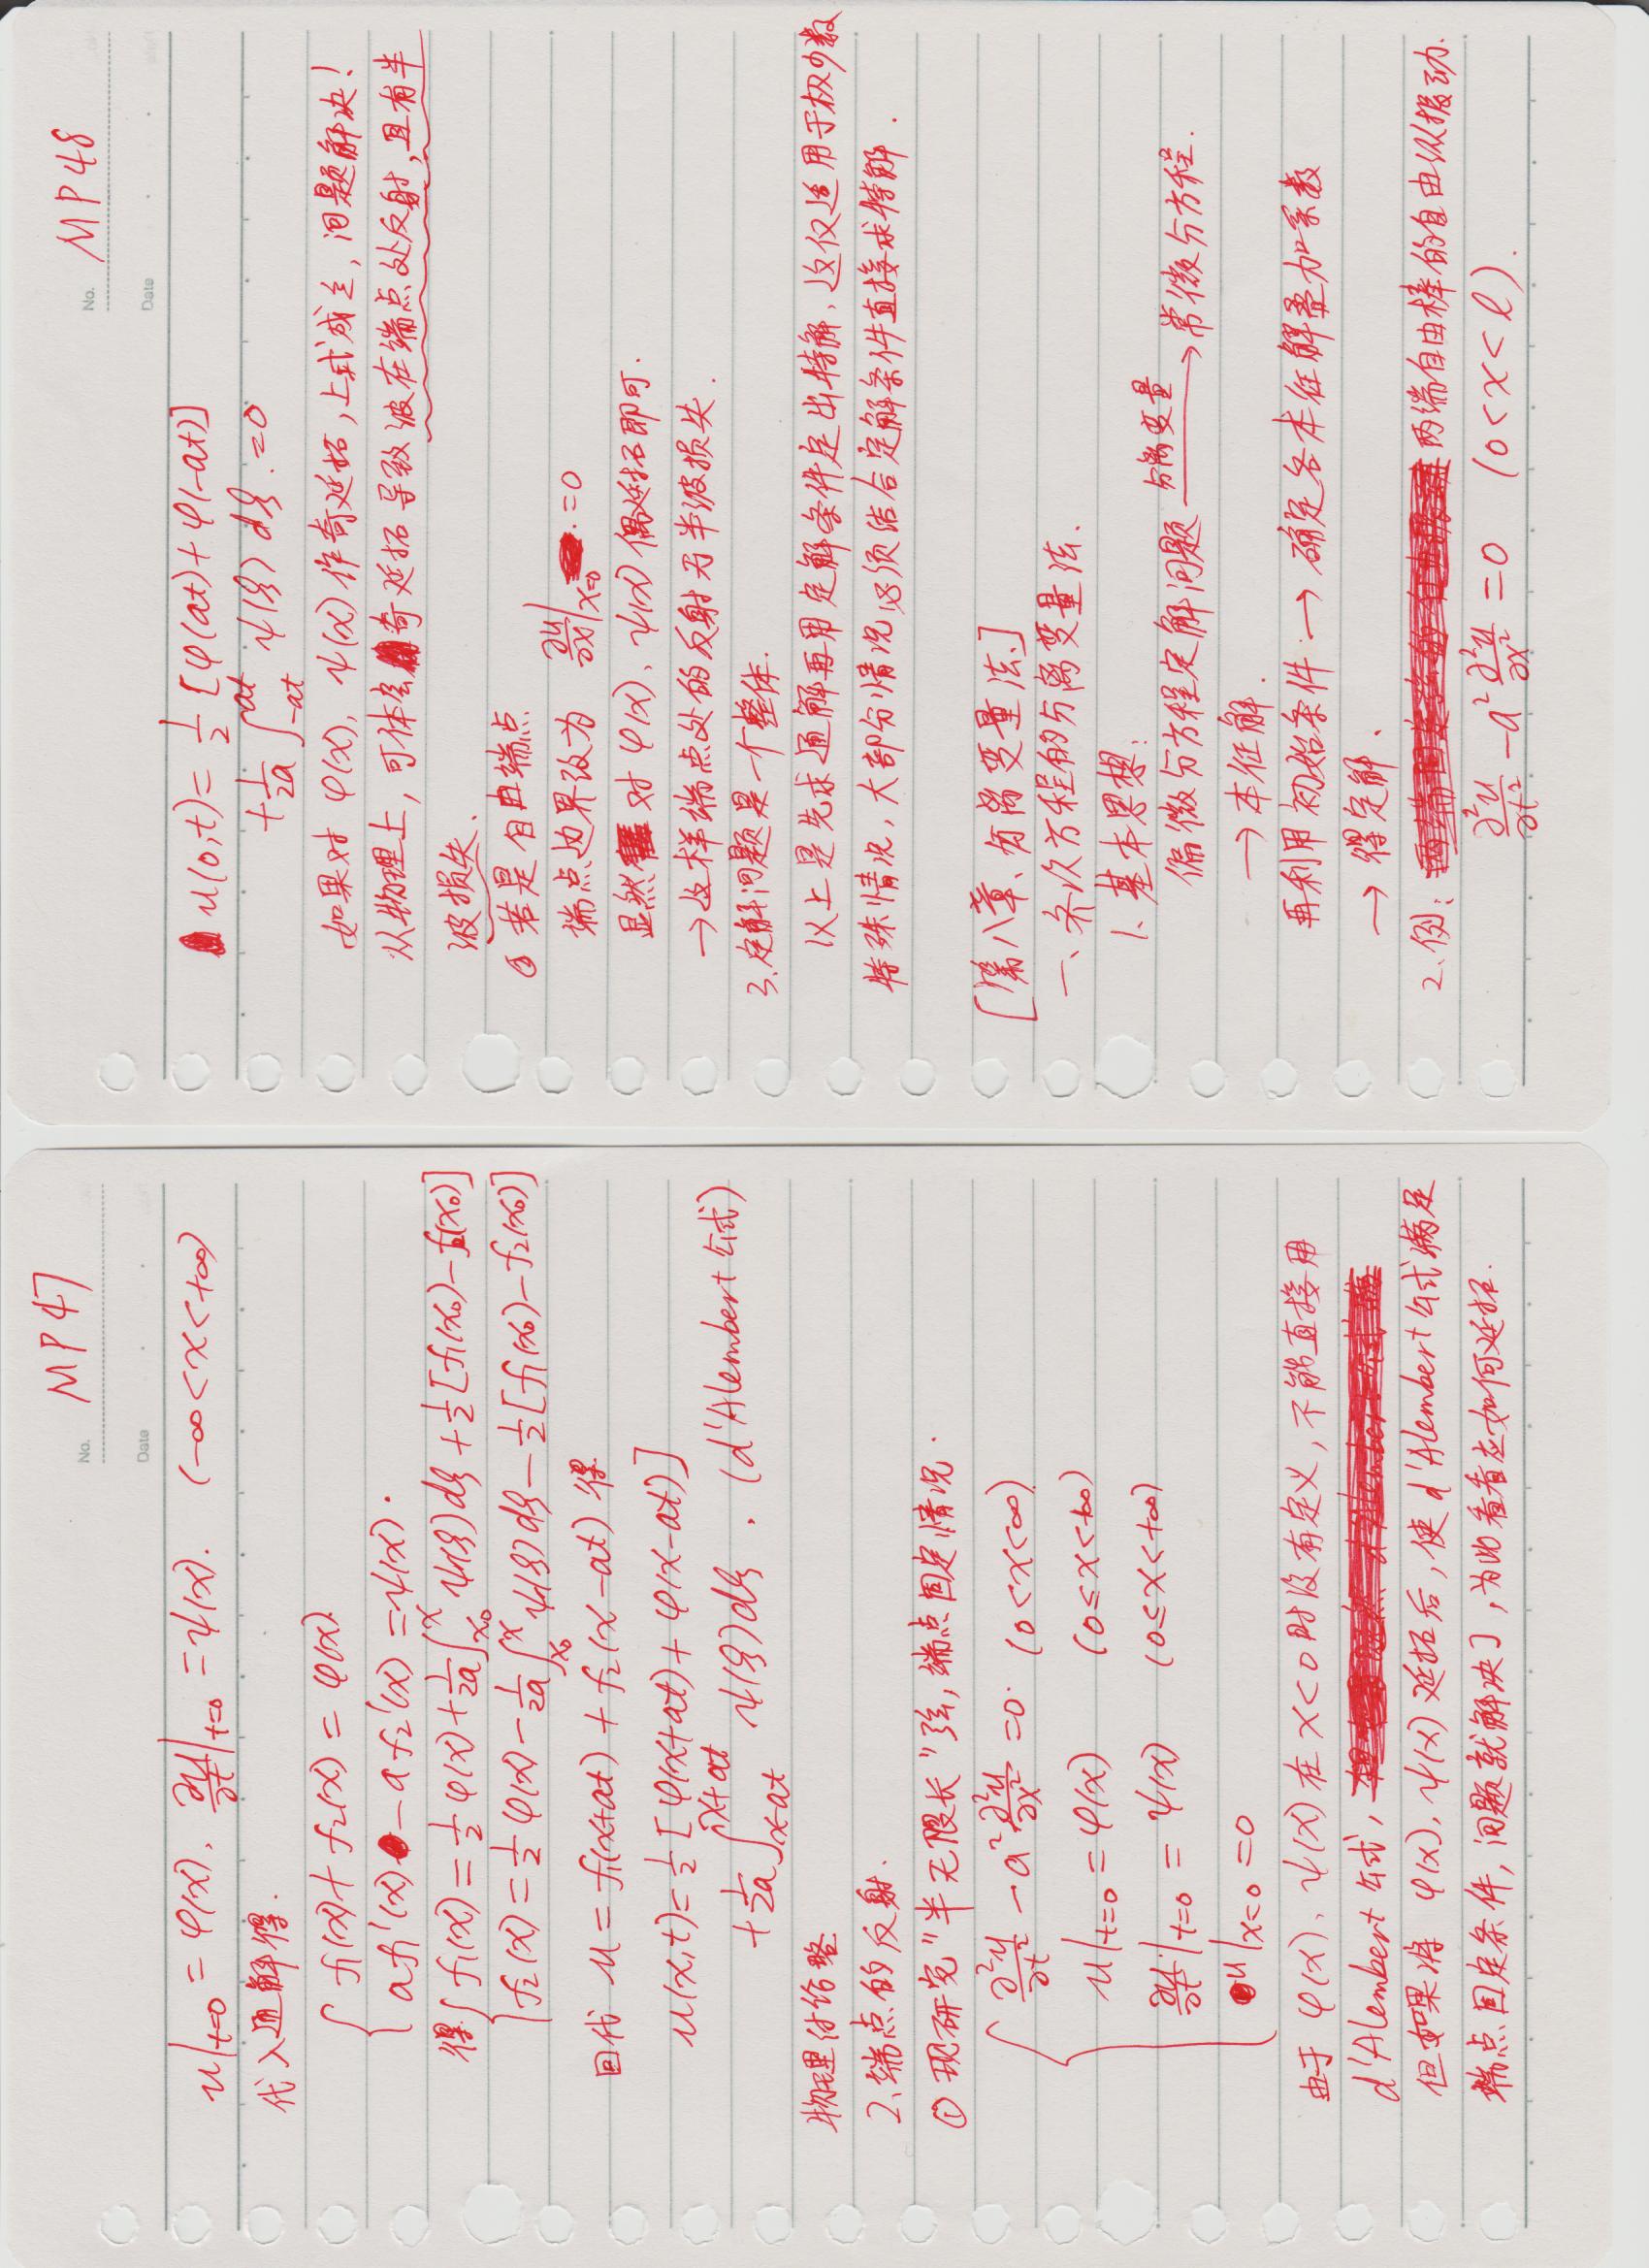 No. MP47
Date
u|t=0 = φ(x), ∂u/∂t|t=0 = ψ(x). (-∞<x<+∞)
代入通解得.
{ f₁(x)+f₂(x) = φ(x).
af₁'(x) - af₂'(x) = ψ(x).
得{ f₁(x) = 1/2 φ(x) + 1/2a ∫_{x₀}^{x} ψ(ξ)dξ + 1/2 [f₁(x₀)-f₂(x₀)]
f₂(x) = 1/2 φ(x) - 1/2a ∫_{x₀}^{x} ψ(ξ)dξ - 1/2 [f₁(x₀)-f₂(x₀)]
回代 u = f₁(x+at) + f₂(x-at) 得
u(x,t) = 1/2 [φ(x+at) + φ(x-at)]
+ 1/2a ∫_{x-at}^{x+at} ψ(ξ)dξ . (d'Alembert 公式)
物理 略
2、端点的反射.
① 现研究"半无限长"弦,端点固定情况.
{ ∂²u/∂t² - a² ∂²u/∂x² = 0. (0<x<∞)
u|t=0 = φ(x) (0≤x<+∞)
∂u/∂t|t=0 = ψ(x) (0≤x<+∞)
u|x=0 = 0
由于 φ(x)、ψ(x) 在 x<0 时没有定义,不能直接用
d'Alembert 公式,
但如果将 φ(x), ψ(x) 延拓后,使 d'Alembert 公式满足
端点固定条件,问题就解决了,为此看看应如何延拓.
No. MP48
Date
u(0,t) = 1/2 [φ(at) + φ(-at)]
+ 1/2a ∫_{-at}^{at} ψ(ξ) dξ . = 0
如果对 φ(x), ψ(x) 作奇延拓,上式成立,问题解决!
从物理上,可体会奇延拓导致波在端点处反射,且有半
波损失.
② 若是自由端点
端点边界改为 ∂u/∂x|x=0 . = 0
显然 对 φ(x)、ψ(x) 偶延拓即可.
→这样端点处的反射无半波损失.
3、定解问题是一个整体.
以上是先求通解再用定解条件定出特解,这仅适用于极少数
特殊情况,大部分情况必须结合定解条件直接求特解.
[第八章、分离变量法.]
一、齐次方程的分离变量法.
1、基本思想:
偏微分方程定解问题 —分离变量→ 常微分方程.
→ 本征解.
再利用初始条件 → 确定各本征解叠加系数
→ 得定解.
2、例: 两端自由棒的自由纵振动.
∂²u/∂t² - a² ∂²u/∂x² = 0 (0<x<l).